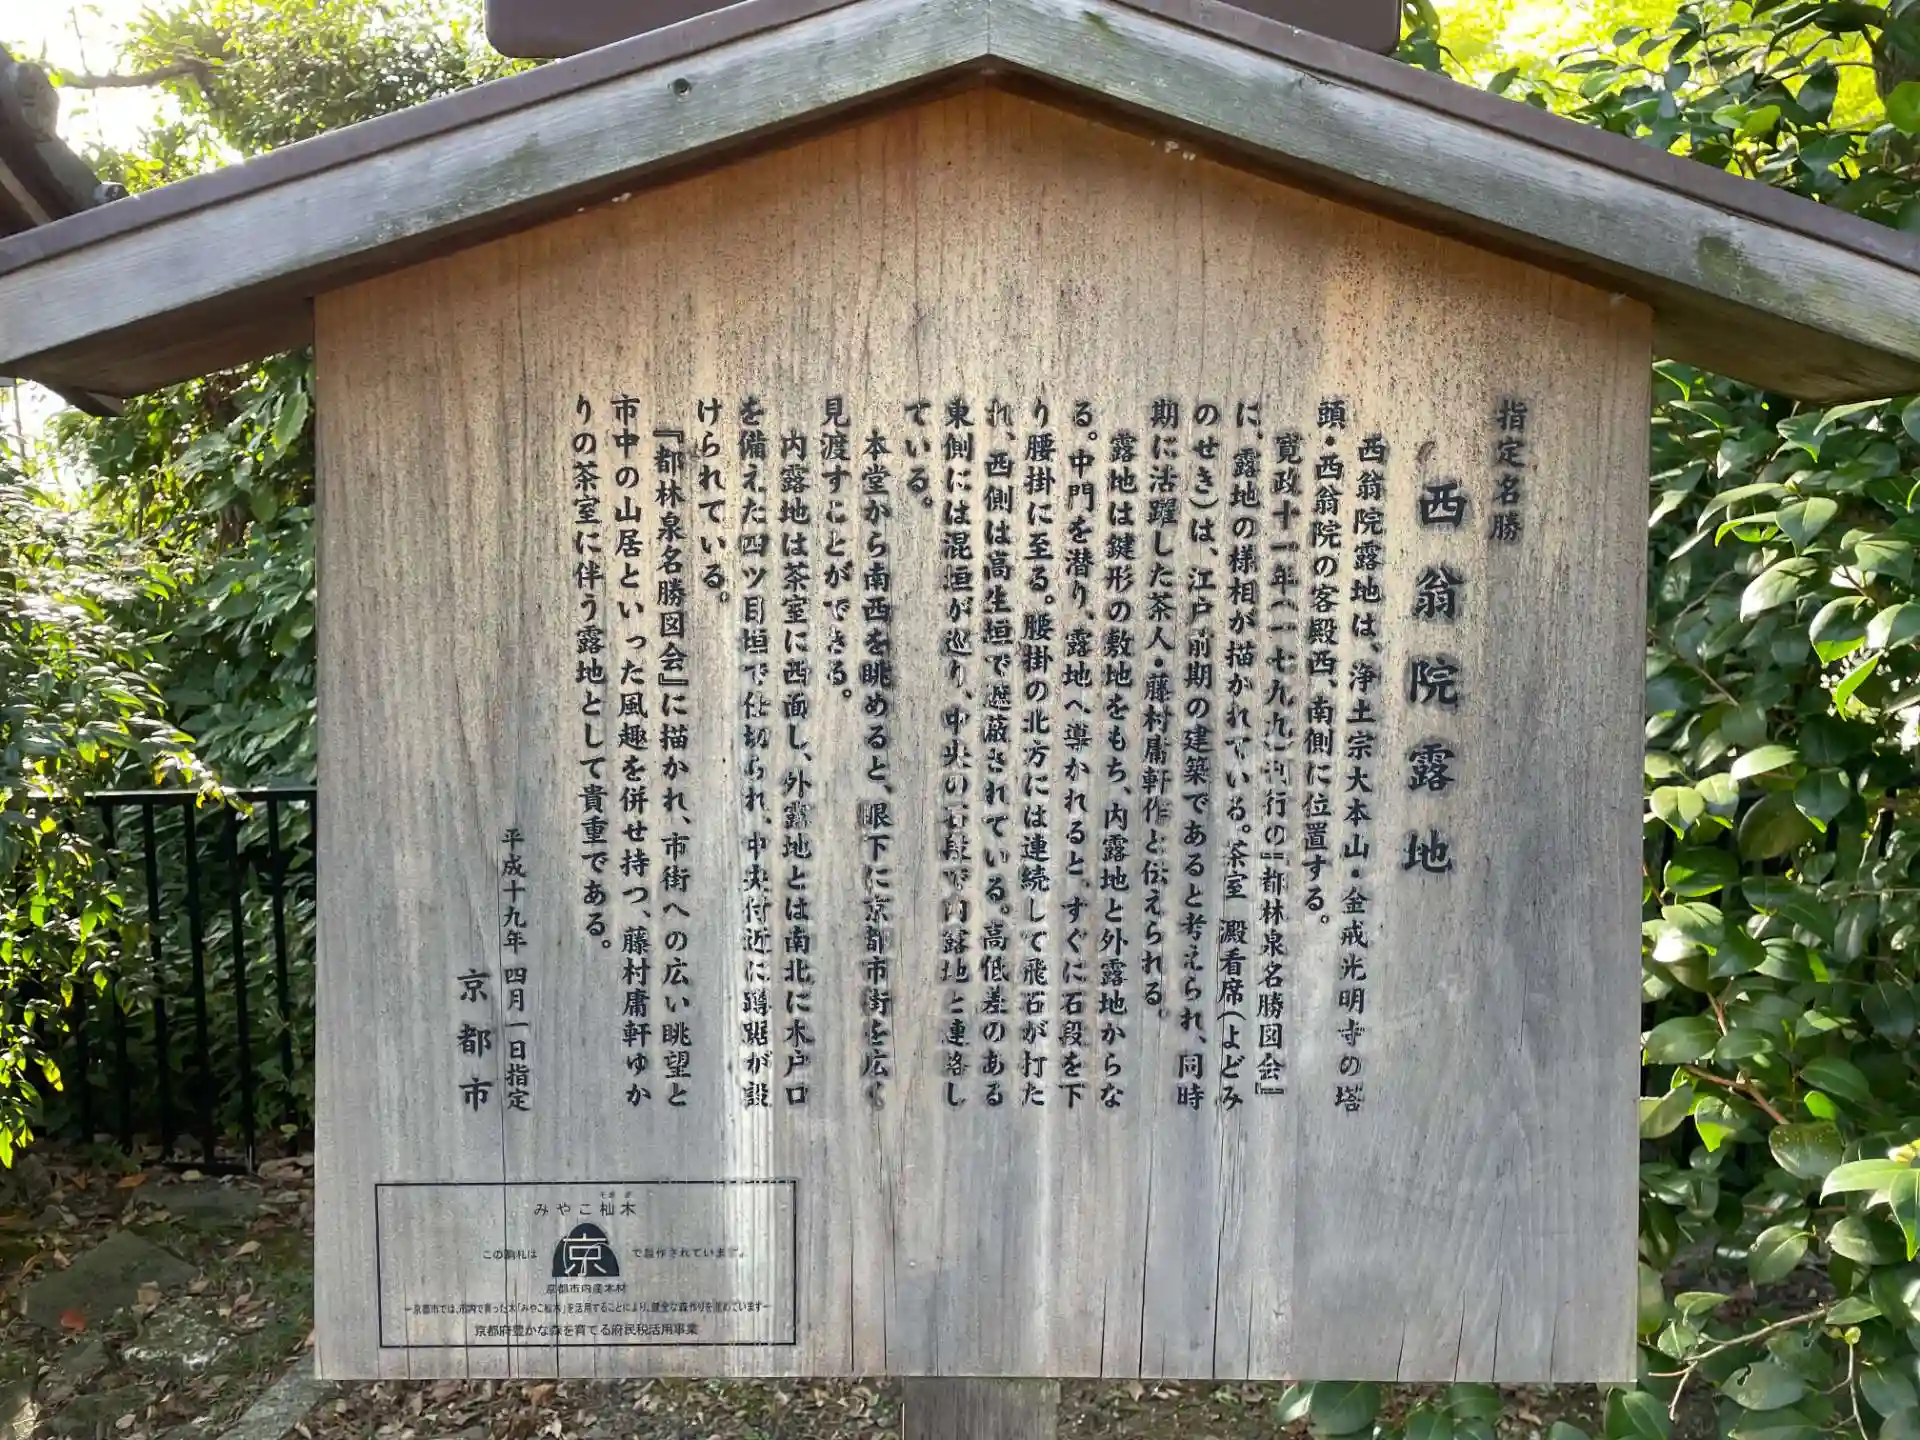 指定名勝
西翁院露地
西翁院露地は、浄土宗大本山・金戒光明寺の塔
頭・西翁院の客殿西、南側に位置する。
寛政十一年(一七九九)刊行の『都林泉名勝図会』
に、露地の様相が描かれている。茶室 澱看席(よどみ
のせき)は、江戸前期の建築であると考えられ、同時
期に活躍した茶人・藤村庸軒作と伝えられる。
露地は鍵形の敷地をもち、内露地と外露地からな
る。中門を潜り、露地へ導かれると、すぐに石段を下
り腰掛に至る。腰掛の北方には連続して飛石が打た
れ、西側は高生垣で遮蔽されている。高低差のある
東側には混垣が巡り、中央の石段で内露地と連絡し
ている。
本堂から南西を眺めると、眼下に京都市街を広く
見渡すことができる。
内露地は茶室に西面し、外露地とは南北に木戸口
を備えた四ツ目垣で仕切られ、中央付近に蹲踞が設
けられている。
『都林泉名勝図会』に描かれ、市街への広い眺望と
市中の山居といった風趣を併せ持つ、藤村庸軒ゆか
りの茶室に伴う露地として貴重である。
平成十九年 四月一日指定
京都市
みやこ杣木
この駒札は 京 で製作されています。
京都市内産木材
ー京都市では、市内で育った木「みやこ杣木」を活用することにより、健全な森作りを進めていますー
京都府豊かな森を育てる府民税活用事業